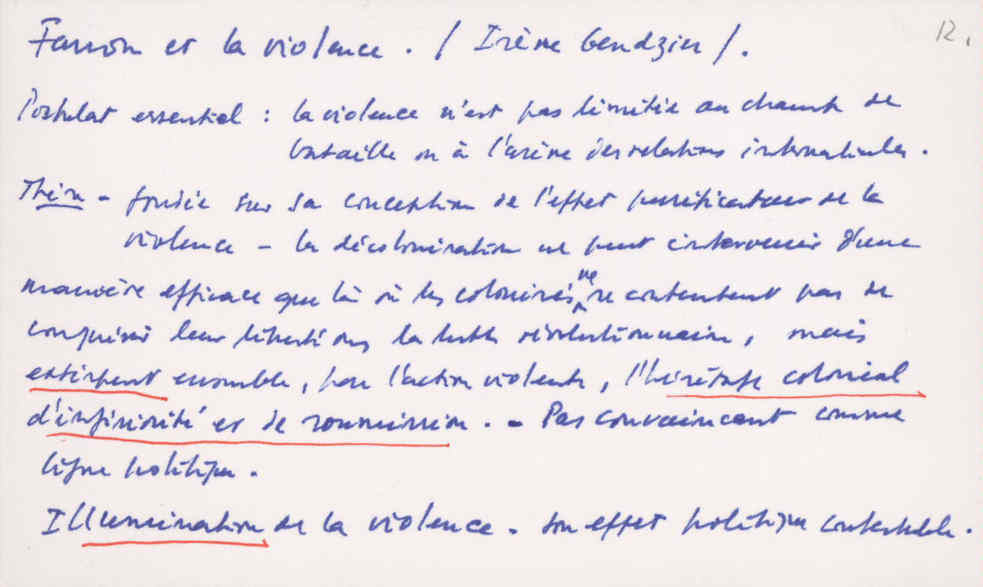 Fanon et la violence. / Irène Gendzier /. 12.
Postulat essentiel : la violence n'est pas limitée au champ de
bataille ou à l'arène des relations internationales.
Thèse - fondée sur sa conception de l'effet purificateur de la
violence - la décolonisation ne peut intervenir d'une
manière efficace que là où les colonisés ne se contentent pas de
conquérir leur liberté dans la lutte révolutionnaire, mais
extirpent ensemble, par l'action violente, l'héritage colonial
d'infériorité et de soumission. - Pas convaincant comme
ligne politique.
Illumination de la violence. Son effet politique contestable.